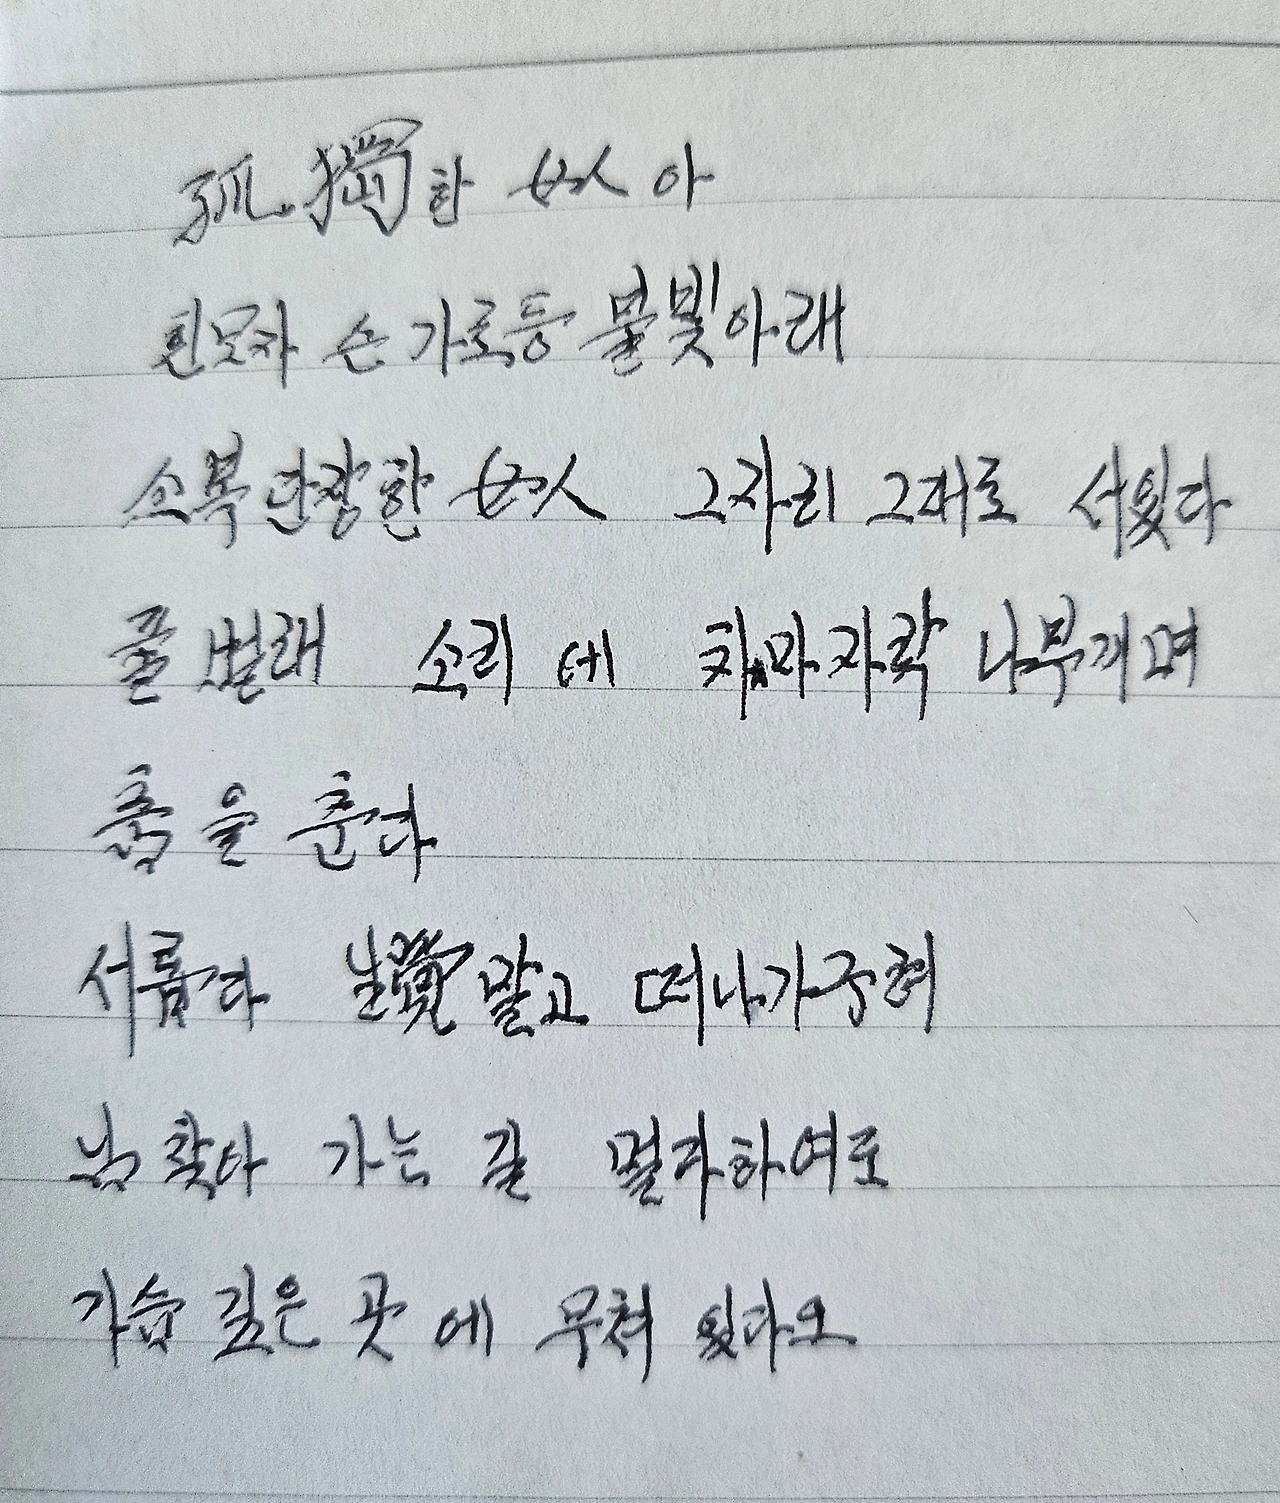 孤獨한 女人아
흰모자 쓴 가로등 불빛아래
소복단장한 女人 그자리 그대로 서있다
풀벌래 소리에 치마자락 나부끼며
춤을 춘다
서름다 生覺말고 떠나가구려
님 찾아 가는 길 멀다하여도
가슴 깊은 곳에 무쳐 있다오